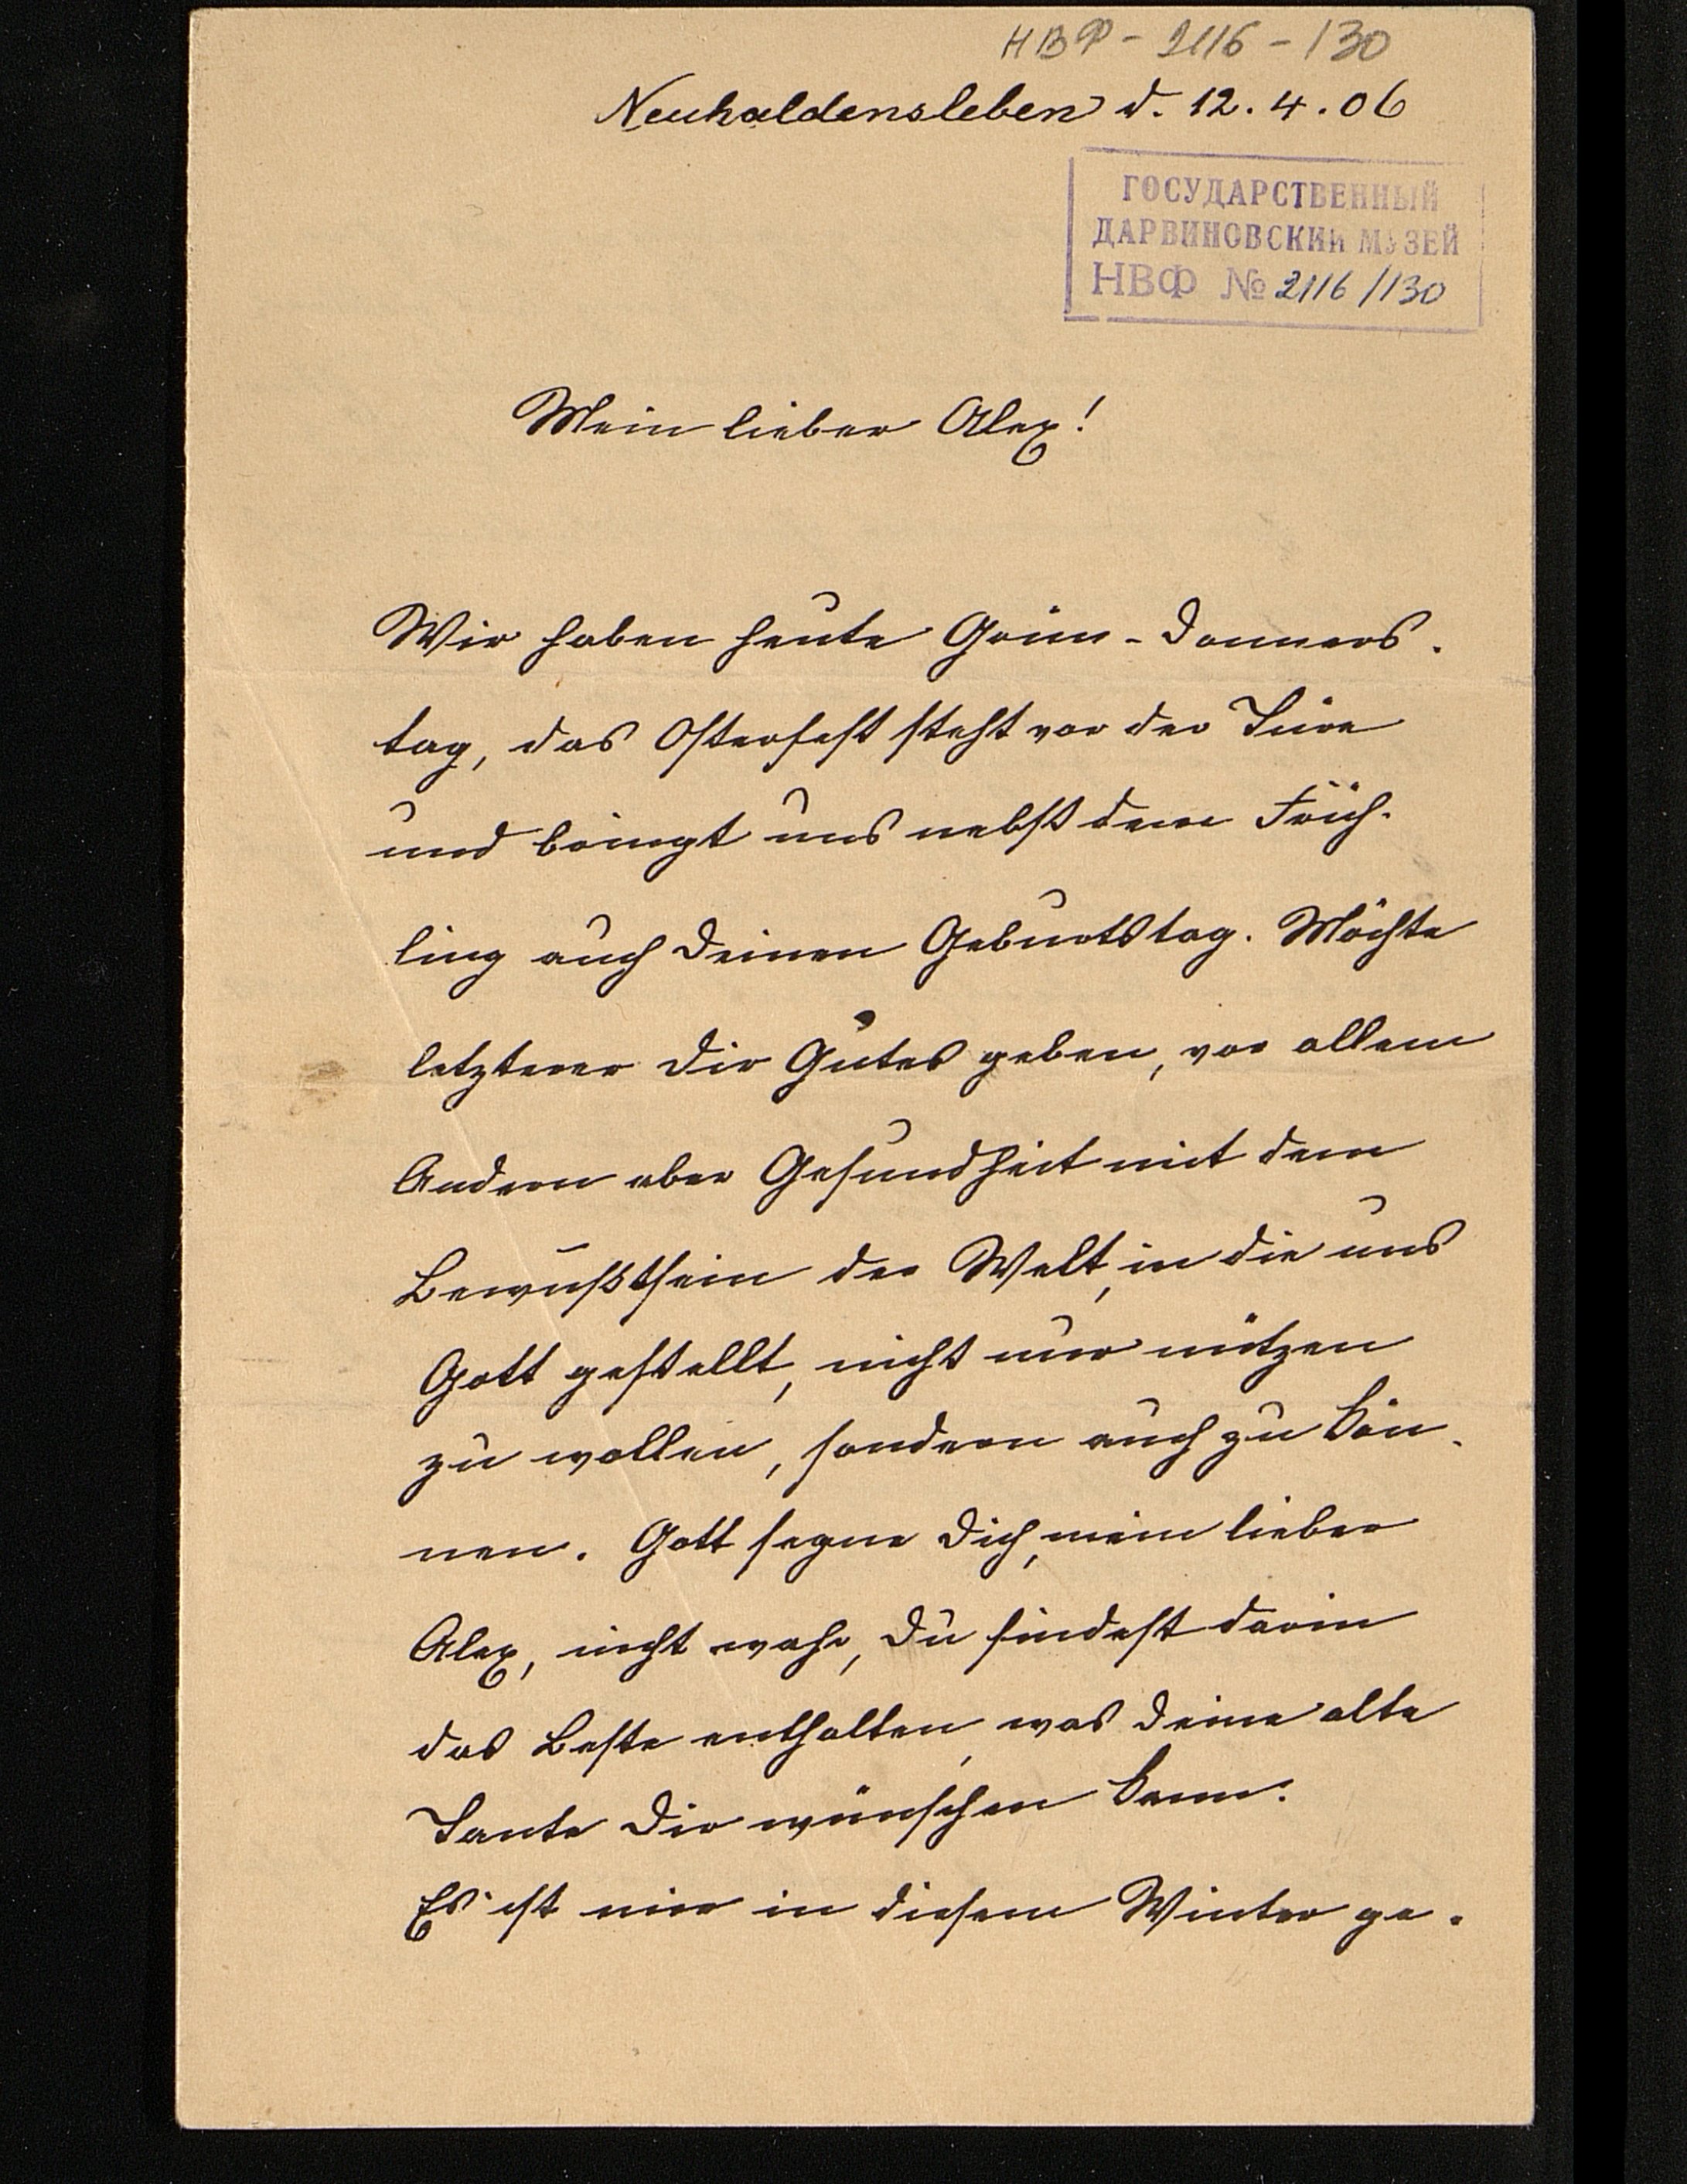 НВФ - 2116 - 130
Neuhaldensleben d. 12.4.06
ГОСУДАРСТВЕННЫЙ
ДАРВИНОВСКИЙ МУЗЕЙ
НВФ № 2116/130
Mein lieber Alex!
Wir haben heute Grün-Donners-
tag, das Osterfest steht vor der Türe
und bringt uns nebst dem Früh-
ling auch Deinen Geburtstag. Möchte
letzterer Dir Gutes geben, vor allem
Andern aber Gesundheit mit dem
Bewußtsein der Welt, in die uns
Gott gestellt, nicht nur nützen
zu wollen, sondern auch zu kön-
nen. Gott segne Dich, mein lieber
Alex, nicht wahr, Du findest darin
das Beste enthalten, was Deine alte
Tante Dir wünschen kann.
Es ist mir in diesem Winter ge-